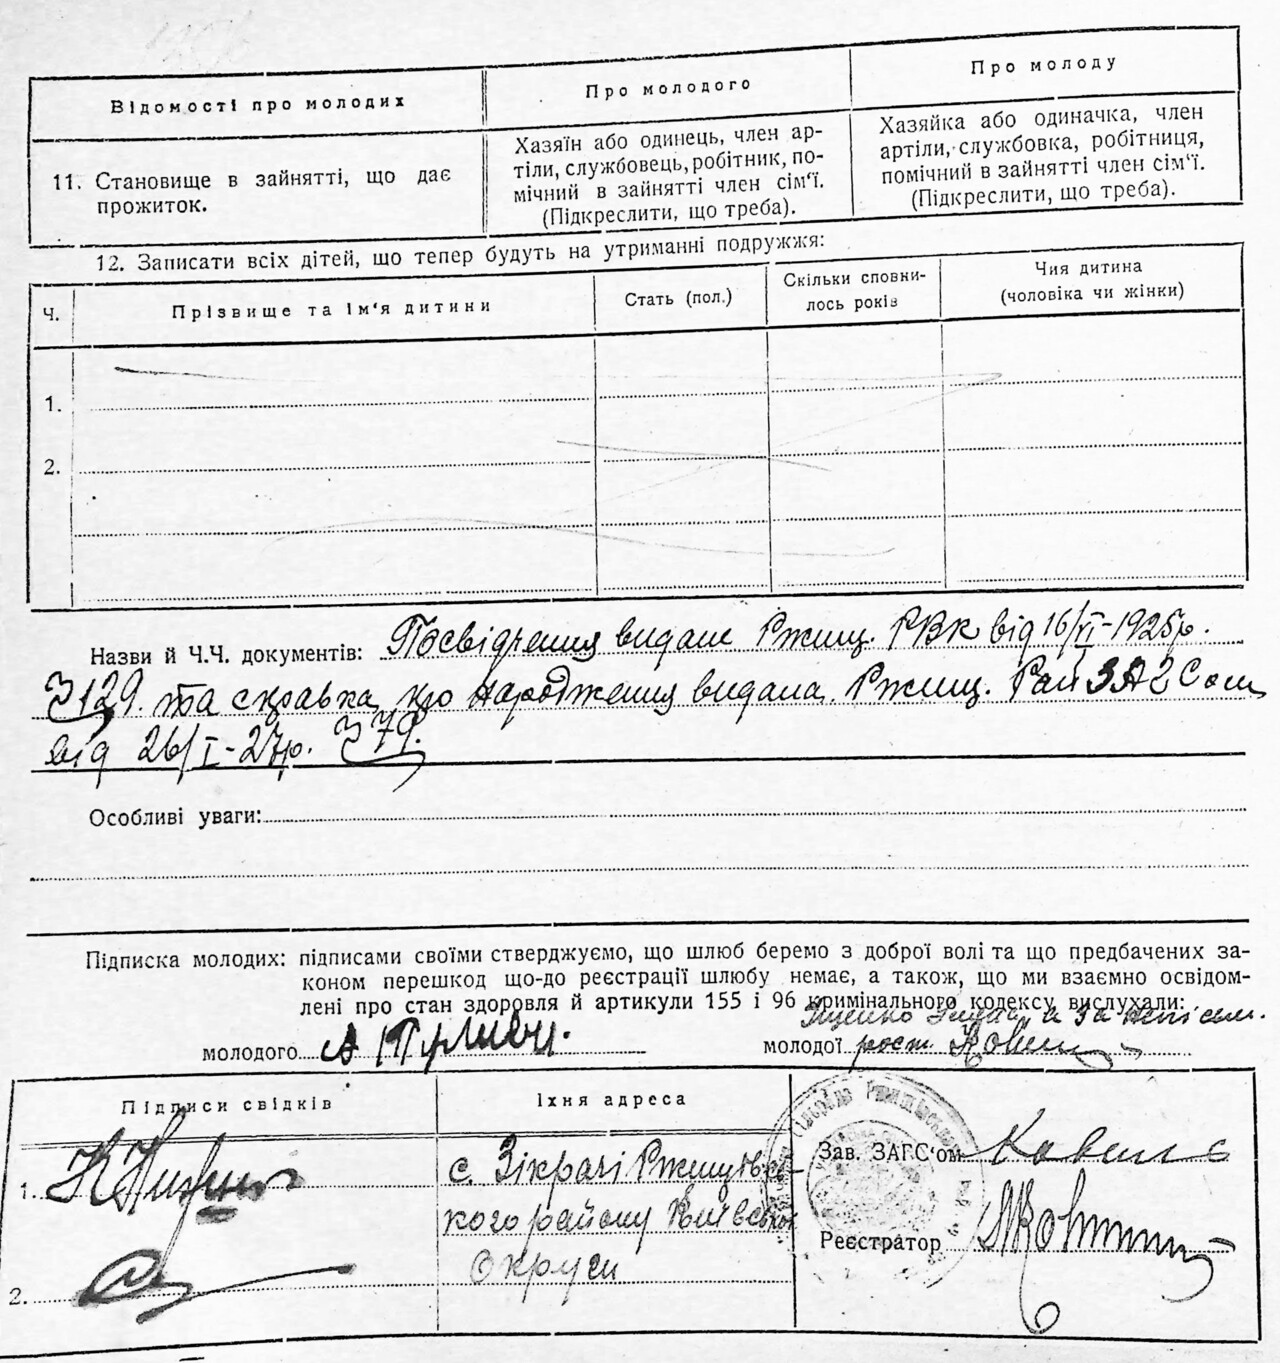 Відомості про молодих
Про молодого
Про молоду
11. Становище в зайнятті, що дає
прожиток.
Хазяїн або одинець, член ар-
тіли, службовець, робітник, по-
мічний в зайнятті член сім'ї.
(Підкреслити, що треба).
Хазяйка або одиначка, член
артіли, службовка, робітниця,
помічний в зайнятті член сім'ї.
(Підкреслити, що треба).
12. Записати всіх дітей, що тепер будуть на утриманні подружжя:
Ч.
Прізвище та ім'я дитини
Стать (пол.)
Скільки сповни-
лось років
Чия дитина
(чоловіка чи жінки)
1.
2.
Назви й Ч.Ч. документів: Посвідчення видане Ржищ. РВК від 16/VI-1925р.
З 129. та справка про народження видана Ржищ. Рай ЗАГСом
від 26/I-27р. З 79.
Особливі уваги:
Підписка молодих: підписами своїми стверджуємо, що шлюб беремо з доброї волі та що предбачених за-
коном перешкод що-до реєстрації шлюбу немає, а також, що ми взаємно освідом-
лені про стан здоровля й артикули 155 і 96 кримінального кодексу вислухали:
молодого
молодої
Підписи свідків
Їхня адреса
1.
с. Зікрачі Ржищевсь-
кого району Київської
Округи
2.
Зав. ЗАГС'ом
Реєстратор